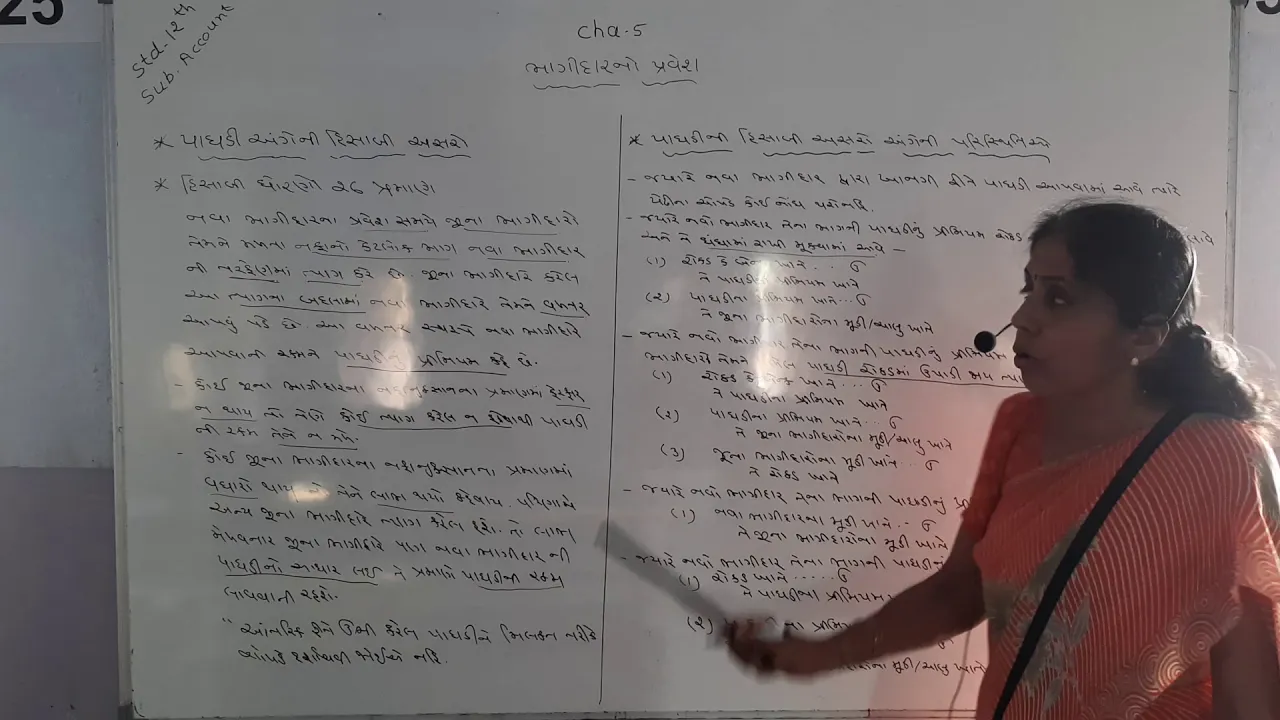 25
Std-12th
Sub. Account
cha.5
ભાગીદારનો પ્રવેશ
* પાઘડી અંગેની હિસાબી અસરો
* હિસાબી ધોરણો ૨૬ પ્રમાણે
નવા ભાગીદારના પ્રવેશ સમયે જૂના ભાગીદારો
તેમને મળતા નફાનો કેટલોક ભાગ નવા ભાગીદાર
ની તરફેણમાં ત્યાગ કરે છે. જૂના ભાગીદારે કરેલ
આ ત્યાગના બદલામાં નવા ભાગીદારે તેમને વળતર
આપવું પડે છે. આ વળતર સ્વરૂપે નવા ભાગીદારે
આપવાની રકમને પાઘડીનું પ્રીમિયમ કહે છે.
- કોઈ જૂના ભાગીદારના નફાનુકસાનના પ્રમાણમાં ફેરફાર
ન થાય તો તેણે કોઈ ત્યાગ કરેલ ન હોવાથી પાઘડી
ની રકમ તેને ન મળે.
- કોઈ જૂના ભાગીદારના નફાનુકસાનના પ્રમાણમાં
વધારો થાય તો તેને લાભ થયો કહેવાય. પરિણામે
અન્ય જૂના ભાગીદારે ત્યાગ કરેલ હશે. તો લાભ
મેળવનાર જૂના ભાગીદારે પણ નવા ભાગીદાર ની
પાઘડીનો આધાર લઈ તે પ્રમાણે પાઘડીની રકમ
લાવવાની રહેશે.
" આંતરિક રીતે ઉભી કરેલ પાઘડીને મિલકત તરીકે
ચોપડે દર્શાવવી જોઈએ નહિ.
* પાઘડીની હિસાબી અસરો અંગેની પરિસ્થિતિઓ
- જ્યારે નવા ભાગીદાર દ્વારા ખાનગી રીતે પાઘડી આપવામાં આવે ત્યારે
પેઢીના ચોપડે કોઈ નોંધ થશે નહિ.
- જ્યારે નવો ભાગીદાર તેના ભાગની પાઘડીનું પ્રીમિયમ રોકડ
અને તે ધંધામાં રાખી મુકવામાં આવે -
(૧) રોકડ કે બેન્ક ખાતે... ઉ
તે પાઘડીના પ્રીમિયમ ખાતે
(૨) પાઘડીના પ્રીમિયમ ખાતે... ઉ
તે જૂના ભાગીદારોના મૂડી/ચાલુ ખાતે
- જ્યારે નવો ભાગીદાર તેના ભાગની પાઘડીનું પ્રીમિયમ
ભાગીદારો તેમને પાઘડી રોકડમાં ઉપાડી જાય
(૧) રોકડ કે બેન્ક ખાતે... ઉ
તે પાઘડીના પ્રીમિયમ ખાતે
(૨) પાઘડીના પ્રીમિયમ ખાતે... ઉ
તે જૂના ભાગીદારોના મૂડી/ચાલુ ખાતે
(૩) જૂના ભાગીદારોના મૂડી ખાતે... ઉ
તે રોકડ ખાતે
- જ્યારે નવો ભાગીદાર તેના ભાગની પાઘડીનું
(૧) નવા ભાગીદારના મૂડી ખાતે.. ઉ
તે જૂના ભાગીદારોના મૂડી ખાતે
- જ્યારે નવો ભાગીદાર તેના ભાગની પાઘડીનું
(૧) રોકડ ખાતે ..... ઉ
તે પાઘડીના પ્રીમિયમ
(૨)
મૂડી/ચાલુ ખાતે